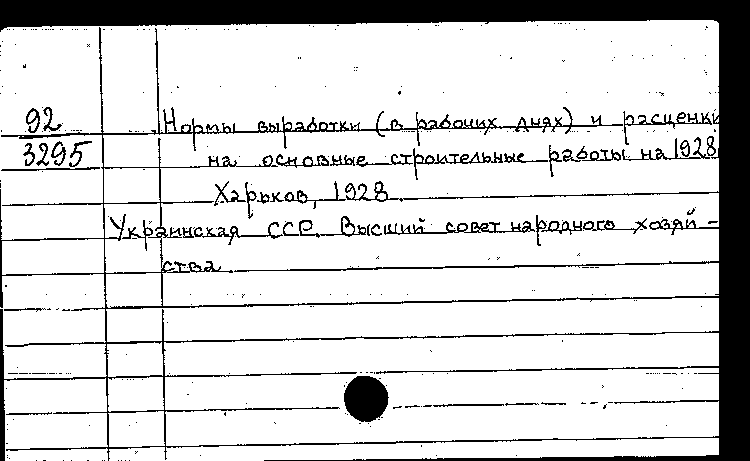 92
3295
Нормы выработки (в рабочих днях) и расценки
на основные строительные работы на 1928
Харьков, 1928.
Украинская ССР. Высший совет народного хозяй-
ства.